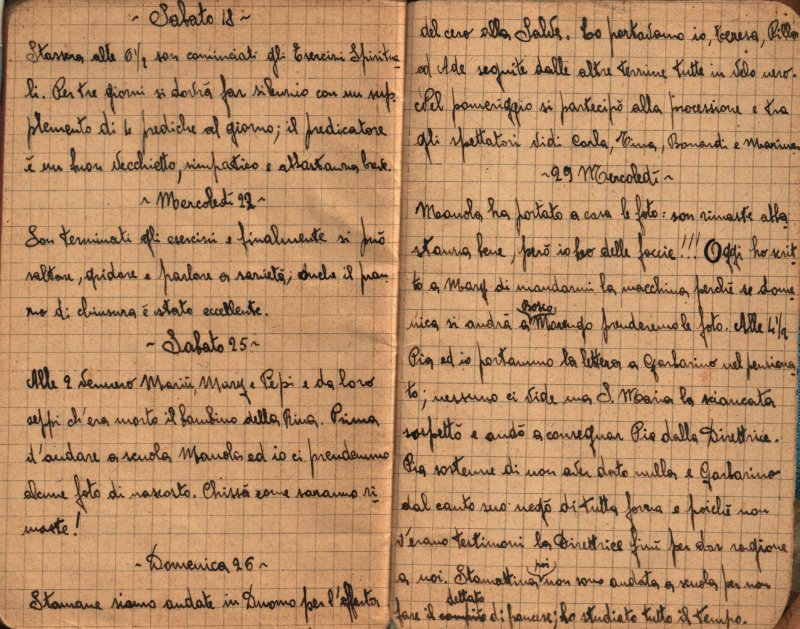 ~ Sabato 18 ~
Stassera alle 6½ son cominciati gli Esercizi Spiritua-
li. Per tre giorni si dovrà far silenzio con un sup-
plemento di 4 prediche al giorno; il predicatore
è un buon vecchietto, simpatico e abbastanza breve.
~ Mercoledì 22 ~
Son terminati gli esercizi e finalmente si può
saltare, gridare e parlare a sazietà; anche il pran-
zo di chiusura è stato eccellente.
~ Sabato 25 ~
Alle 2 vennero Mariù, Mary e Pepi e da loro
seppi ch'era morto il bambino della Rina. Prima
d'andare a scuola Manola ed io ci prendemmo
alcune foto di nascosto. Chissà come saranno ri-
maste!
~ Domenica 26 ~
Stamane siamo andate in Duomo per l'offerta
del cero alla Salve. Lo portavamo io, Teresa, Pilla
ed Ade seguite dalle altre terzine tutte in velo nero.
Nel pomeriggio si partecipò alla processione e tra
gli spettatori vidi Carla, Tina, Bonardi e Marina
~ 29 Mercoledì ~
Manola ha portato a casa le foto: son rimaste abba
stanza bene, però io ho delle faccie!!! Oggi ho scrit-
to a Mary di mandarmi la macchina perché se dome-
nica si andrà a Bosco Marengo prenderemo le foto. Alle 4½
Pia ed io portammo la lettera a Garbarino nel pensiona-
to; nessuno ci vide ma S. Maria la sciancata
sospettò e andò a consegnar Pia dalla Direttrice.
Pia sostenne di non aver dato nulla e Garbarino
dal canto suo negò di tutta forza e poiché non
v'erano testimoni la Direttrice finì per dar ragione
a noi. Stamattina poi non sono andata a scuola per non
fare il dettato di francese; ho studiato tutto il tempo.